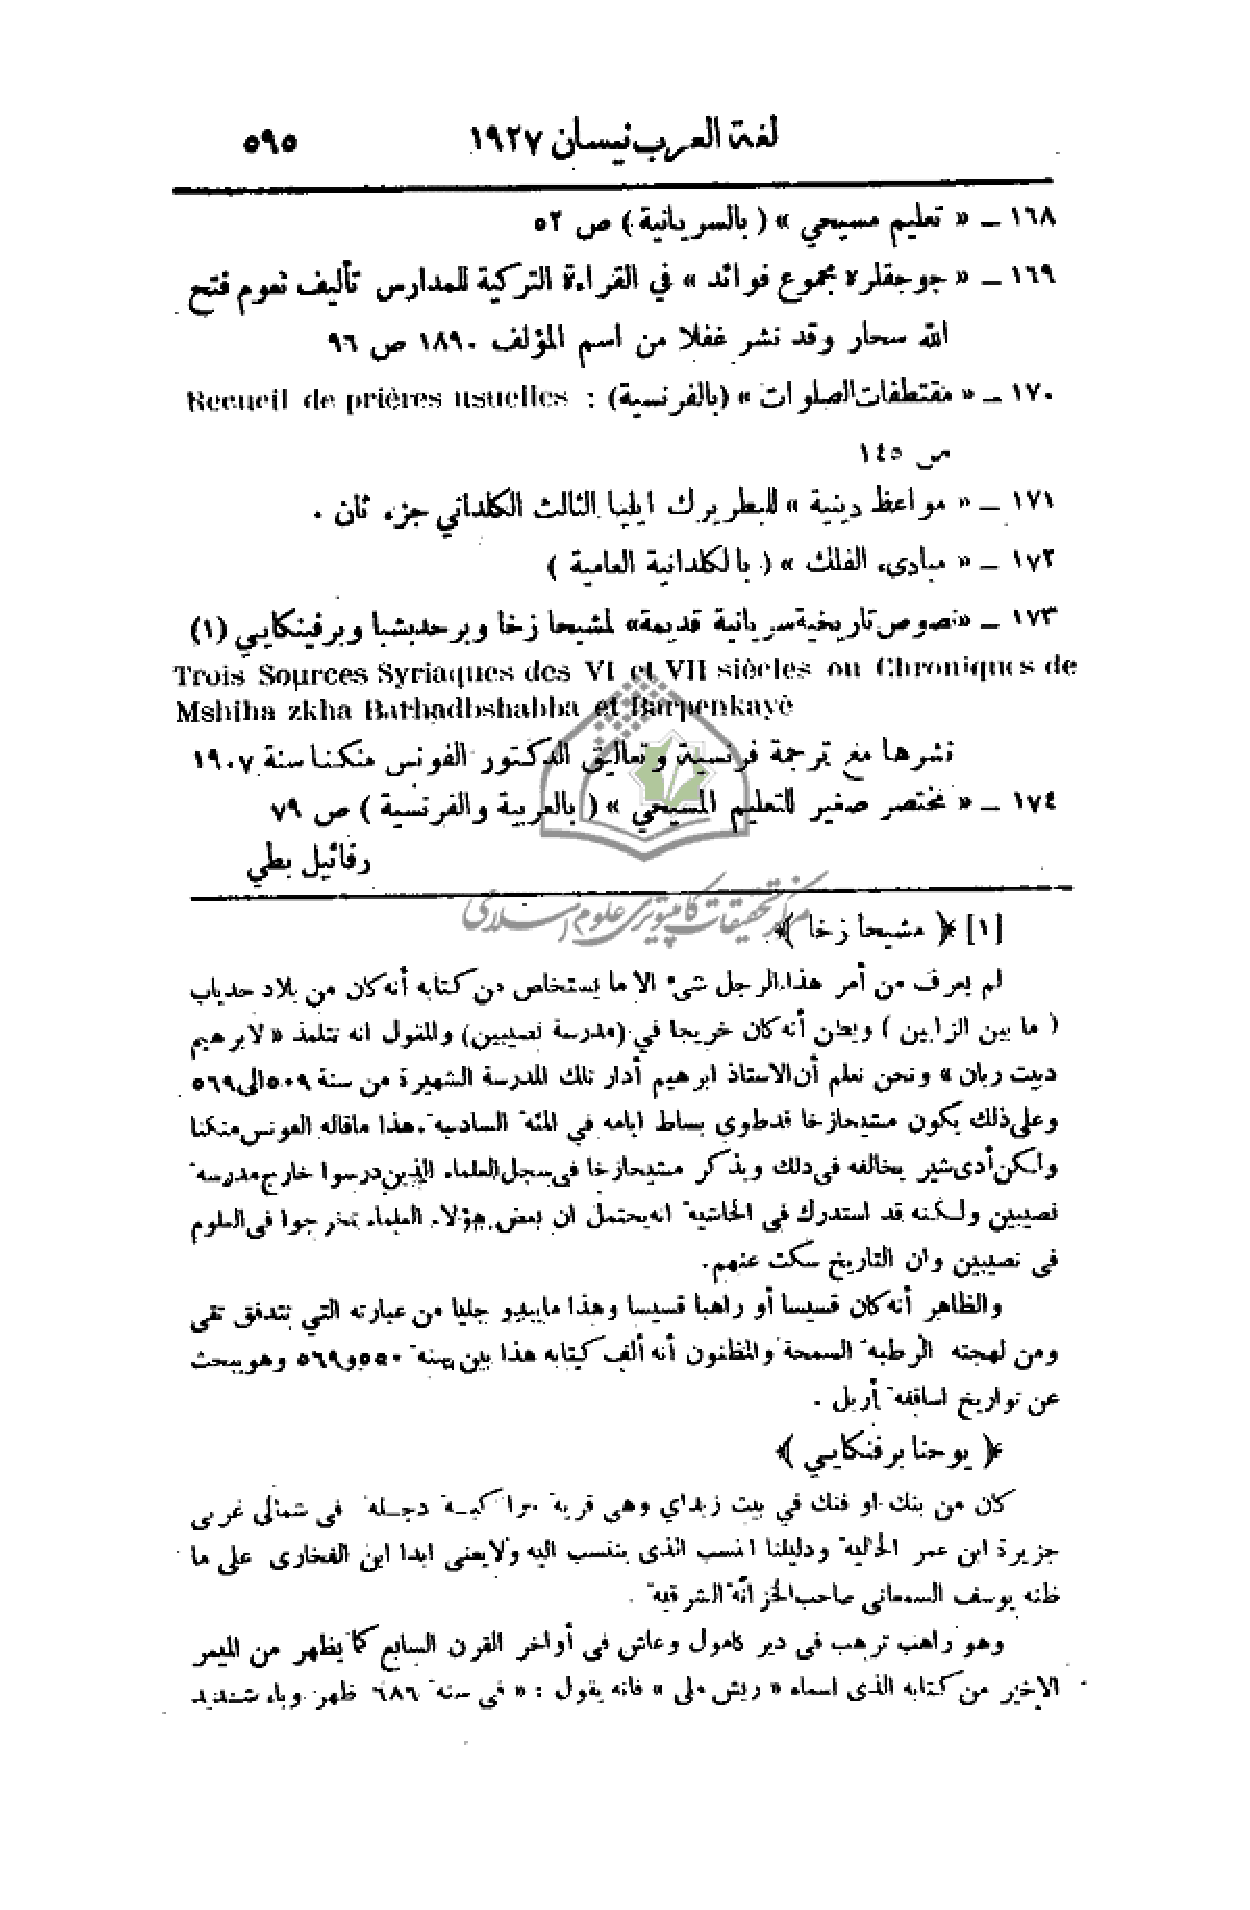 لغة العرب نيسان ١٩٢٧ ٥٩٥
١٦٨ ـ « تعليم مسيحي » ( بالسريانية ) ص ٥٢
١٦٩ ـ « جوجقلره مجموع فوائد » في القراءة التركية للمدارس تأليف نعوم فتح
الله سحار وقد نشر غفلا من اسم المؤلف ١٨٩٠ ص ٩٦
١٧٠ ـ « مقتطفات الصلوات » (بالفرنسية) : Recueil de prières usuelles
ص ١٤٥
١٧١ ـ « مواعظ دينية » للبطريرك ايليا الثالث الكلداني جزء ثان .
١٧٢ ـ « مبادىء الفلك » ( بالكلدانية العامية )
١٧٣ ـ «نصوص تاريخية سريانية قديمة» لمشيحا زخا وبرحدبشبا وبرفينكايي (١)
Trois Sources Syriaques des VI et VII siècles ou Chroniques de
Mshiha zkha Barhadbshabba et Barpenkayè
نشرها مع ترجمة فرنسية وتعاليق الدكتور الفونس منكنا سنة ١٩٠٧
١٧٤ ـ « مختصر صغير للتعليم المسيحي » ( بالعربية والفرنسية ) ص ٧٩
رفائيل بطي
مركز تحقيقات كامپيوتري علوم اسلامي
[١] ﴿ مشيحا زخا ﴾
لم يعرف من أمر هذا الرجل شيء الا ما يستخلص من كتابه أنه كان من بلاد حدياب
( ما بين الزابين ) ويظن أنه كان خريجا في (مدرسة نصيبين) والمقول انه تتلمذ « لابرهيم
دبيت ربان » ونحن نعلم أن الاستاذ ابرهيم أدار تلك المدرسة الشهيرة من سنة ٥٠٩ الى ٥٦٩
وعلى ذلك يكون مشيحازخا قد طوى بساط ايامه في المئة السادسة . هذا ما قاله الفونس منكنا
ولكن أدى شير يخالفه فى ذلك ويذكر مشيحازخا فى سجل العلماء الذين درسوا خارج مدرسة
نصيبين ولكنه قد استدرك في الحاشية انه يحتمل ان بعض هؤلاء العلماء تخرجوا فى العلوم
فى نصيبين وان التاريخ سكت عنهم .
والظاهر أنه كان قسيسا أو راهبا قسيسا وهذا ما يبدو جليا من عبارته التي تتدفق تقى
ومن لهجته الرطبة السمحة والمظنون أنه ألف كتابه هذا بين سنة ٥٥٠ و٥٦٩ وهو يبحث
عن تواريخ اساقفة أربل .
﴿ يوحنا برفنكايي ﴾
كان من بنك او فنك في بيت زبداي وهى قرية مراكبة دجلة فى شمالى غربى
جزيرة ابن عمر الحالية ودليلنا النسب الذى ينتسب اليه ولا يعنى ابدا ابن الفخارى على ما
ظنه يوسف السمعانى صاحب الخزانة الشرقية .
وهو راهب ترهب فى دير كامول وعاش فى أواخر القرن السابع كما يظهر من الميمر
الاخير من كتابه الذى اسماه « ريش ملي » فانه يقول : « في سنة ٦٨٦ ظهر وباء شديد